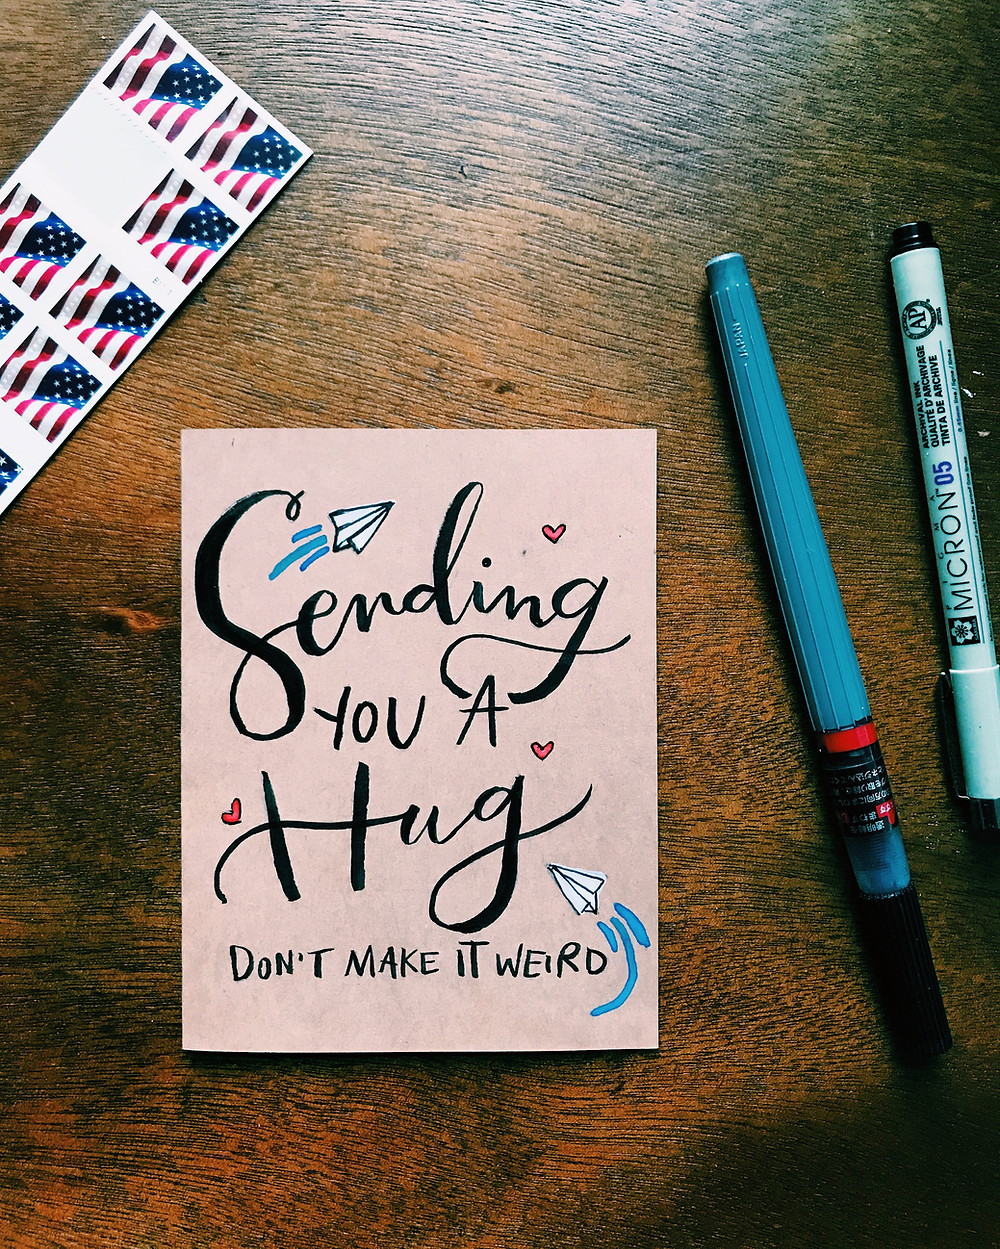 Sending
YOU A
Hug
DON'T MAKE IT WEIRD
JAPAN
AP
ARCHIVAL INK
QUALITÉ D'ARCHIVAGE
TINTA DE ARCHIVE
PIGMA
MICRON 05